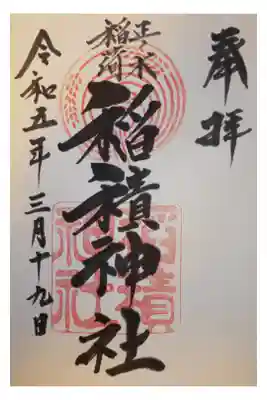 奉拝
正ノ木
稲河
稲積神社
令和五年三月十九日
稲積
神社